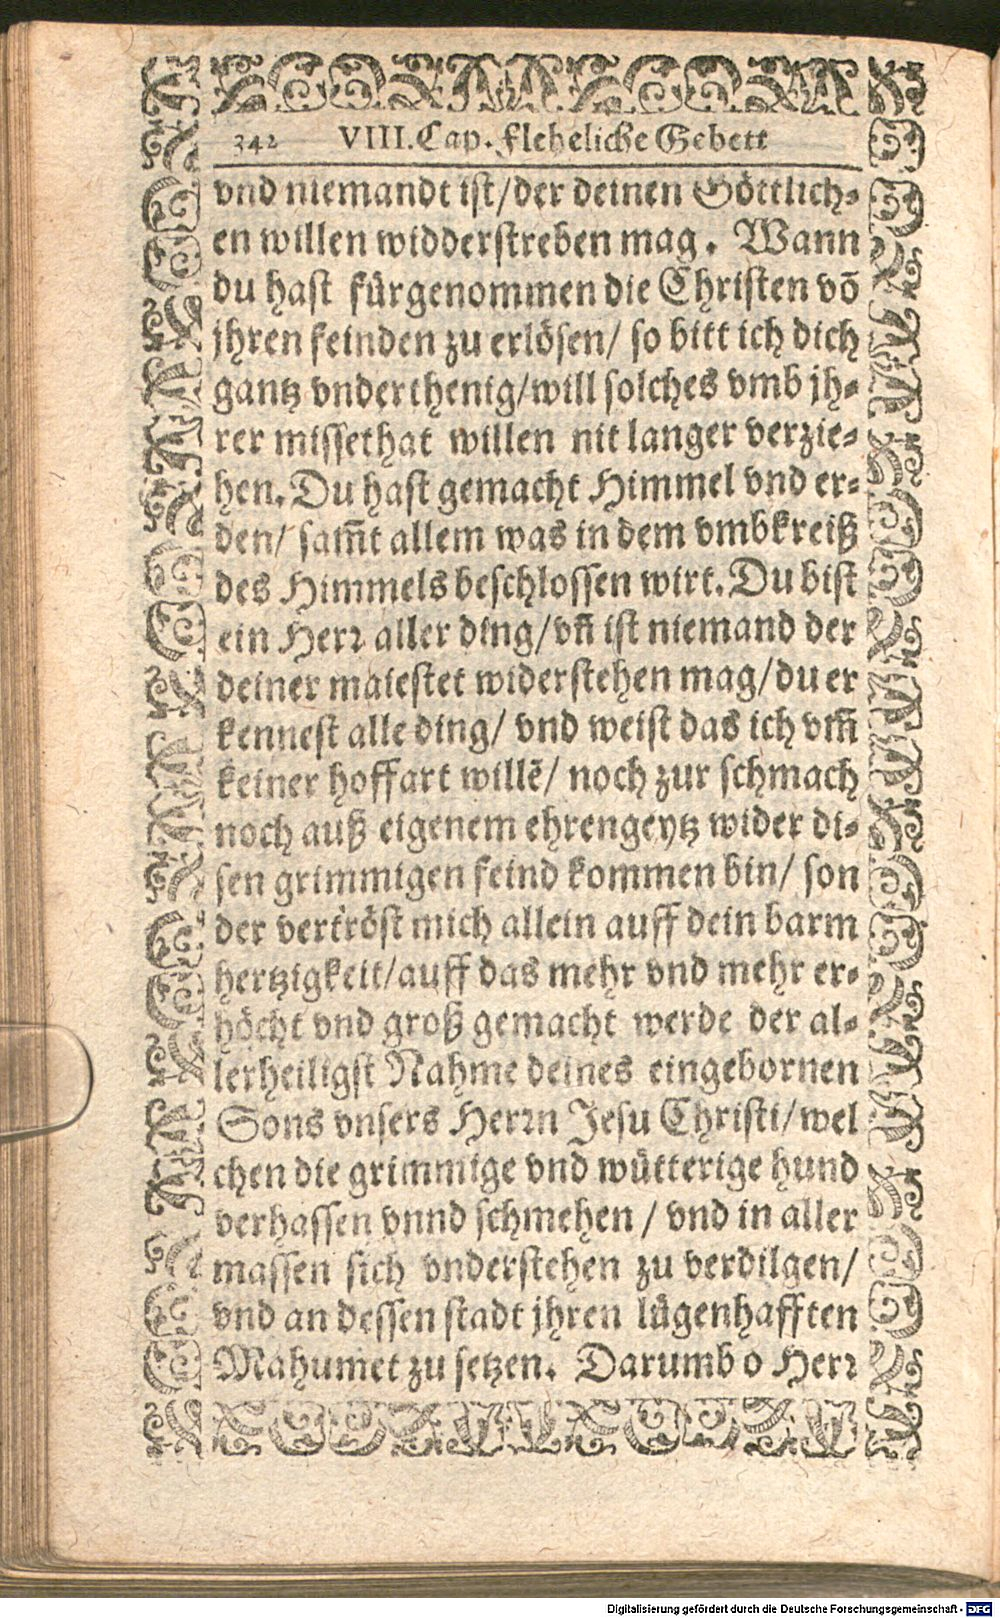 342 VIII. Cap. Fleheliche Gebett
vnd niemandt ist/der deinen Göttlich-
en willen widderstreben mag. Wann
du hast fürgenommen die Christen võ
jhren feinden zu erlösen/ so bitt ich dich
gantz vnderthenig/will solches vmb jh-
rer missethat willen nit langer verzie-
hen. Du hast gemacht Himmel vnd er-
den/ sam̃t allem was in dem vmbkreiß
des Himmels beschlossen wirt. Du bist
ein Herr aller ding/vñ ist niemand der
deiner maiestet widerstehen mag/du er
kennest alle ding/ vnd weist das ich vm̃
keiner hoffart willẽ/ noch zur schmach
noch auß eigenem ehrengeytz wider di-
sen grimmigen feind kommen bin/ son
der vertröst mich allein auff dein barm
hertzigkeit/auff das mehr vnd mehr er-
höcht vnd groß gemacht werde der al-
lerheiligst Nahme deines eingebornen
Sons vnsers Herrn Jesu Christi/wel
chen die grimmige vnd wütterige hund
verhassen vnnd schmehen / vnd in aller
massen sich vnderstehen zu verdilgen/
vnd an dessen stadt jhren lügenhafften
Mahumet zu setzen. Darumb o Herr
Digitalisierung gefördert durch die Deutsche Forschungsgemeinschaft - DFG